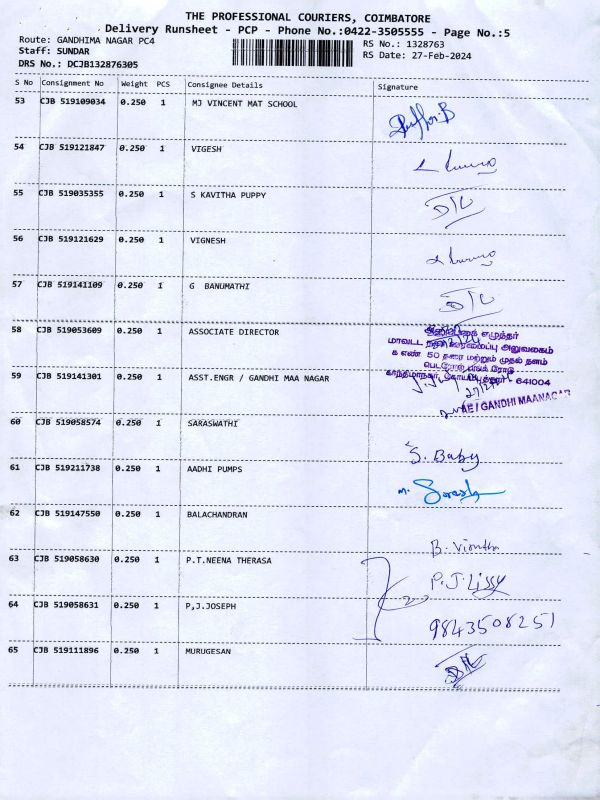 THE PROFESSIONAL COURIERS, COIMBATORE
Delivery Runsheet - PCP - Phone No.:0422-3505555 - Page No.:5
Route: GANDHIMA NAGAR PC4 RS No.: 1328763
Staff: SUNDAR RS Date: 27-Feb-2024
DRS No.: DCJB132876305
S No Consignment No Weight PCS Consignee Details Signature
53 CJB 519109034 0.250 1 MJ VINCENT MAT SCHOOL
54 CJB 519121847 0.250 1 VIGESH
55 CJB 519035355 0.250 1 S KAVITHA PUPPY
56 CJB 519121629 0.250 1 VIGNESH
57 CJB 519141109 0.250 1 G BANUMATHI
58 CJB 519053609 0.250 1 ASSOCIATE DIRECTOR
எழுத்தர்
மாவட்ட அலுவலகம்
50 தரை மற்றும் முதல் தளம்
ரோடு
59 CJB 519141301 0.250 1 ASST.ENGR / GANDHI MAA NAGAR
641004
AE / GANDHI MAANAGAR
60 CJB 519058574 0.250 1 SARASWATHI
S. Baby
61 CJB 519211738 0.250 1 AADHI PUMPS
M. Suresh
62 CJB 519147550 0.250 1 BALACHANDRAN
63 CJB 519058630 0.250 1 P.T.NEENA THERASA
P.J. Lissy
64 CJB 519058631 0.250 1 P,J.JOSEPH
9843508251
65 CJB 519111896 0.250 1 MURUGESAN